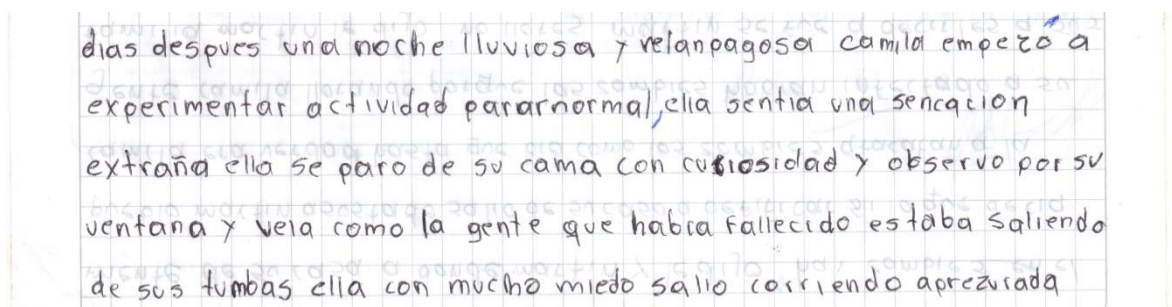 dias despues una noche lluviosa y relanpagosa camila empezó a
experimentar actividad pararnormal, ella sentia una sencacion
extraña ella se paro de su cama con curiosidad y observo por su
ventana y veia como la gente que habia fallecido estaba saliendo
de sus tumbas ella con mucho miedo salio corriendo aprezurada